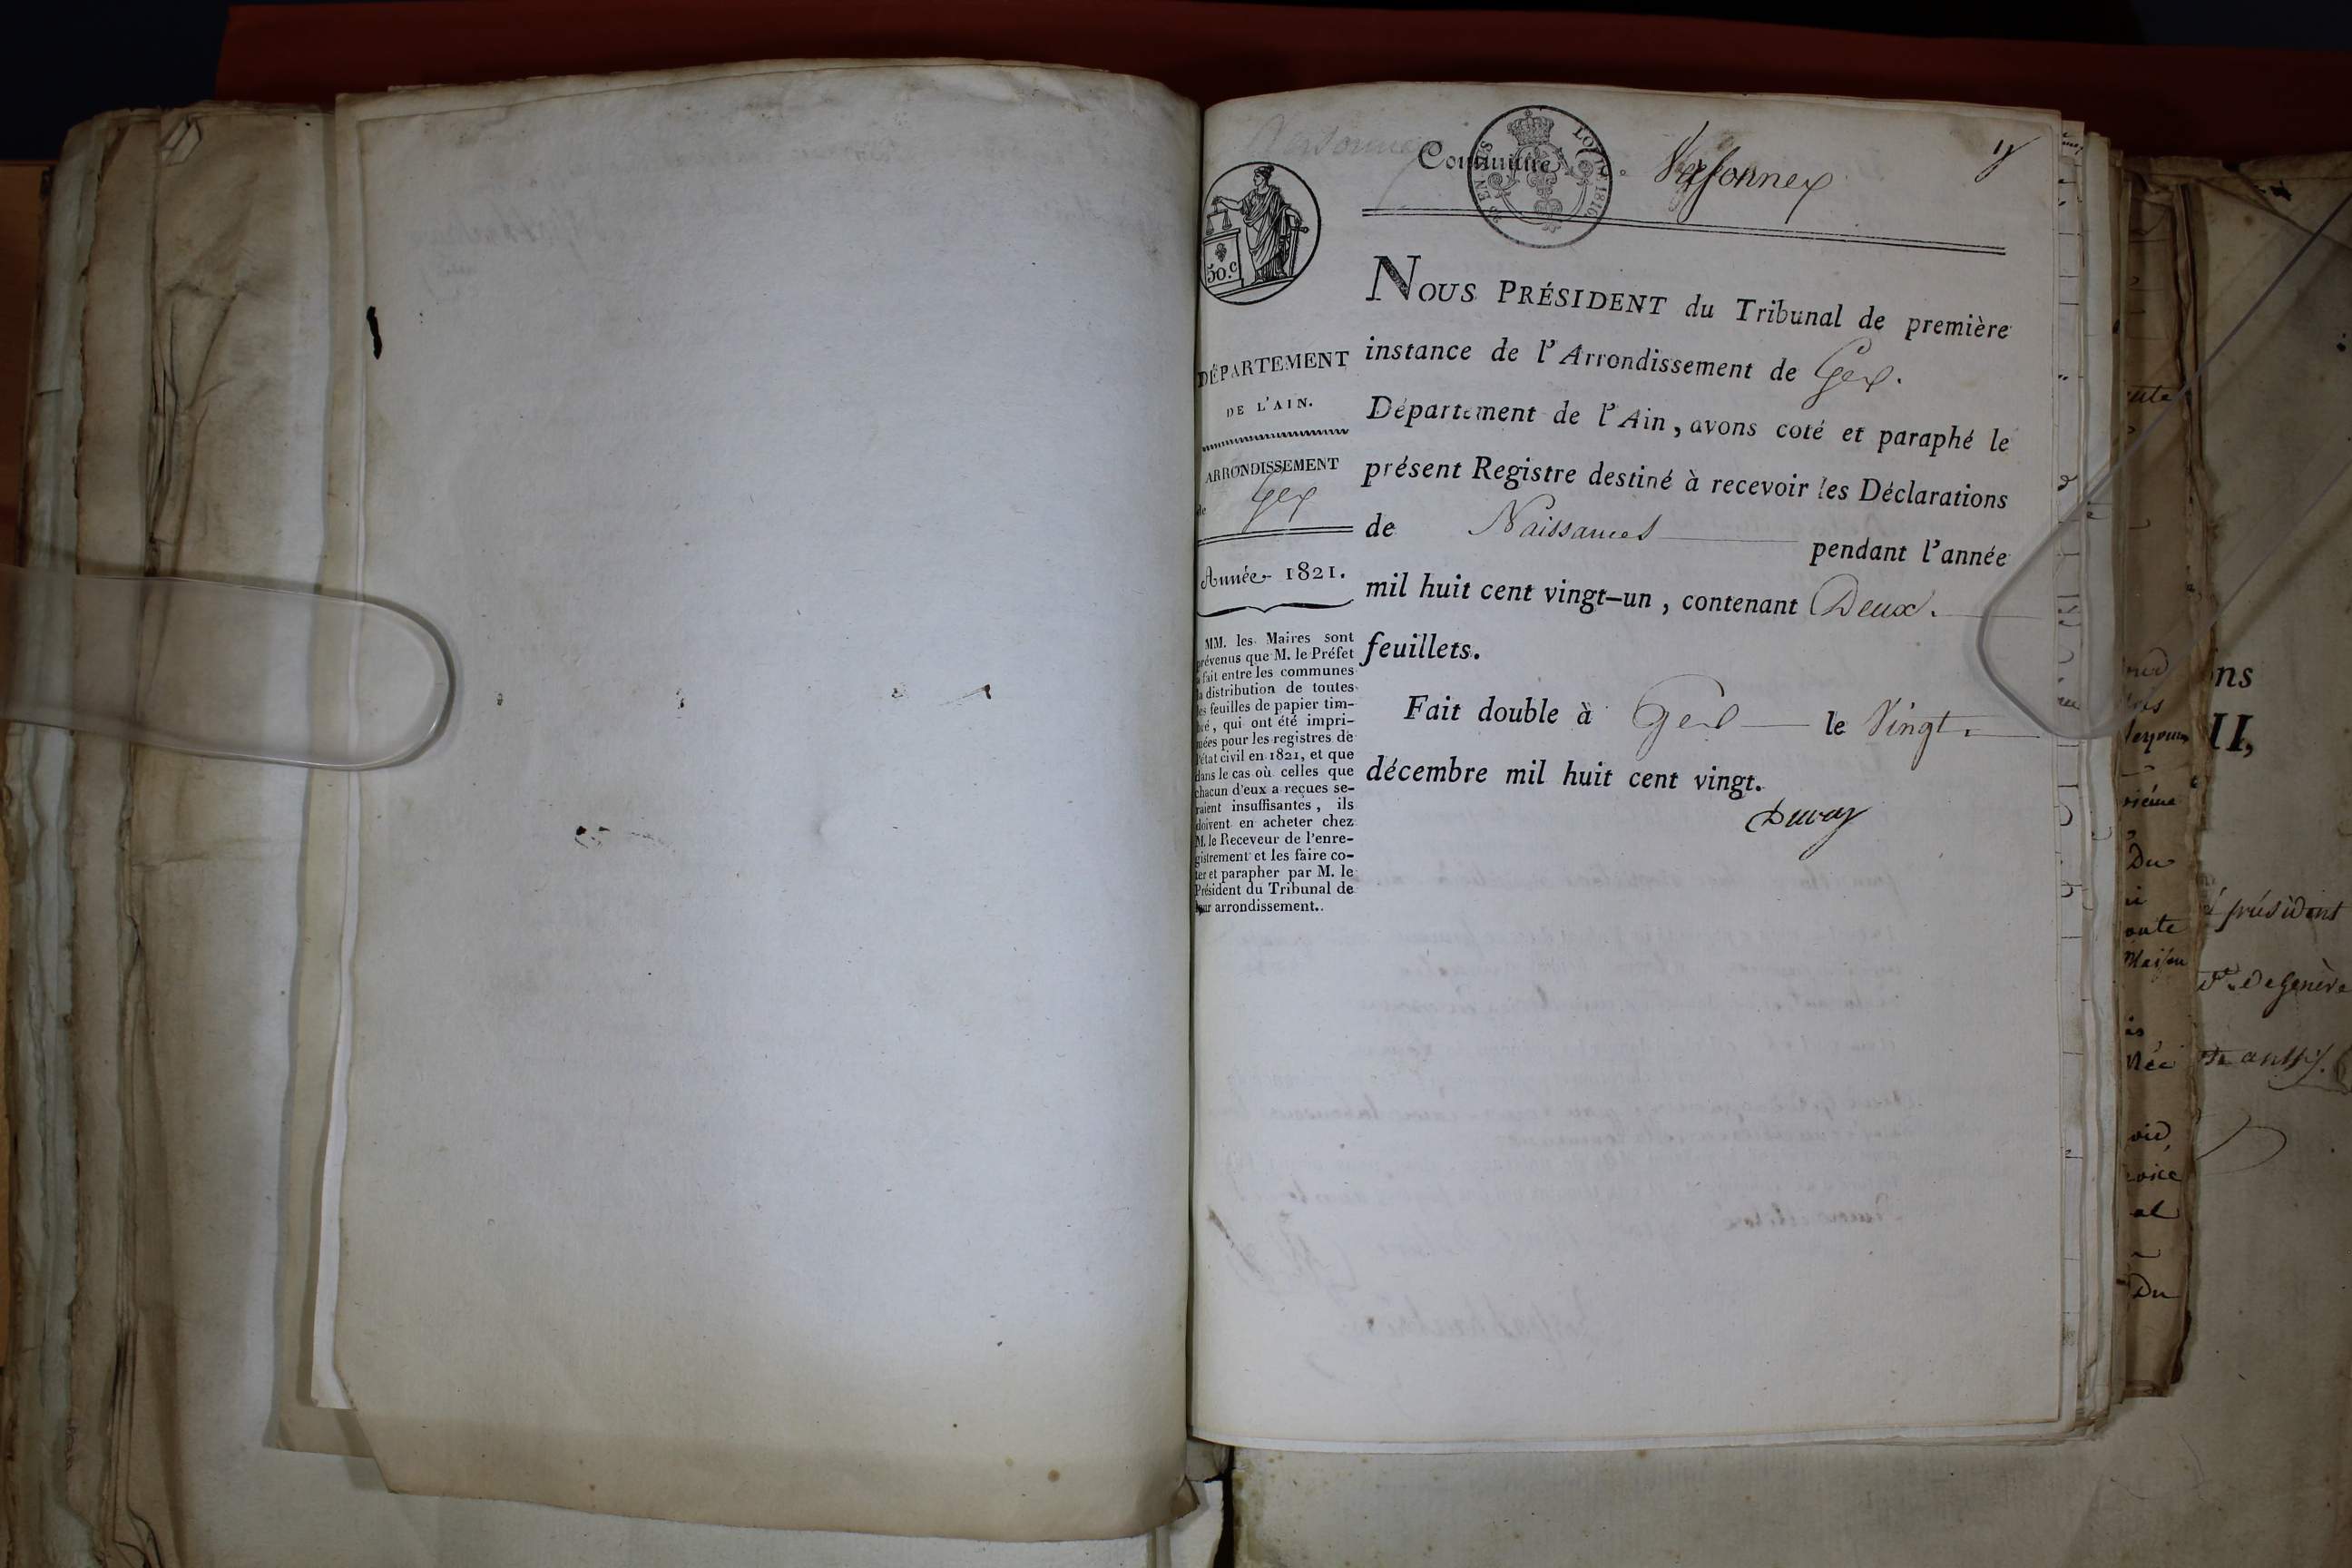 Commune Versonnex
50.c
LOI DE 1816
DÉPARTEMENT
DE L'AIN.
ARRONDISSEMENT
de Gex
Année 1821.
MM. les Maires sont
prévenus que M. le Préfet
a fait entre les communes
la distribution de toutes
les feuilles de papier tim-
bré, qui ont été impri-
mées pour les registres de
l'état civil en 1821, et que
dans le cas où celles que
chacun d'eux a reçues se-
raient insuffisantes, ils
doivent en acheter chez
M. le Receveur de l'enre-
gistrement et les faire co-
ter et parapher par M. le
Président du Tribunal de
leur arrondissement..
NOUS PRÉSIDENT du Tribunal de première
instance de l'Arrondissement de Gex.
Département de l'Ain, avons coté et paraphé le
présent Registre destiné à recevoir les Déclarations
de Naissances pendant l'année
mil huit cent vingt-un, contenant Deux.
feuillets.
Fait double à Gex le Vingt.
décembre mil huit cent vingt.
Duval
ons
II,
président
De Genève
Du
Maison
Du